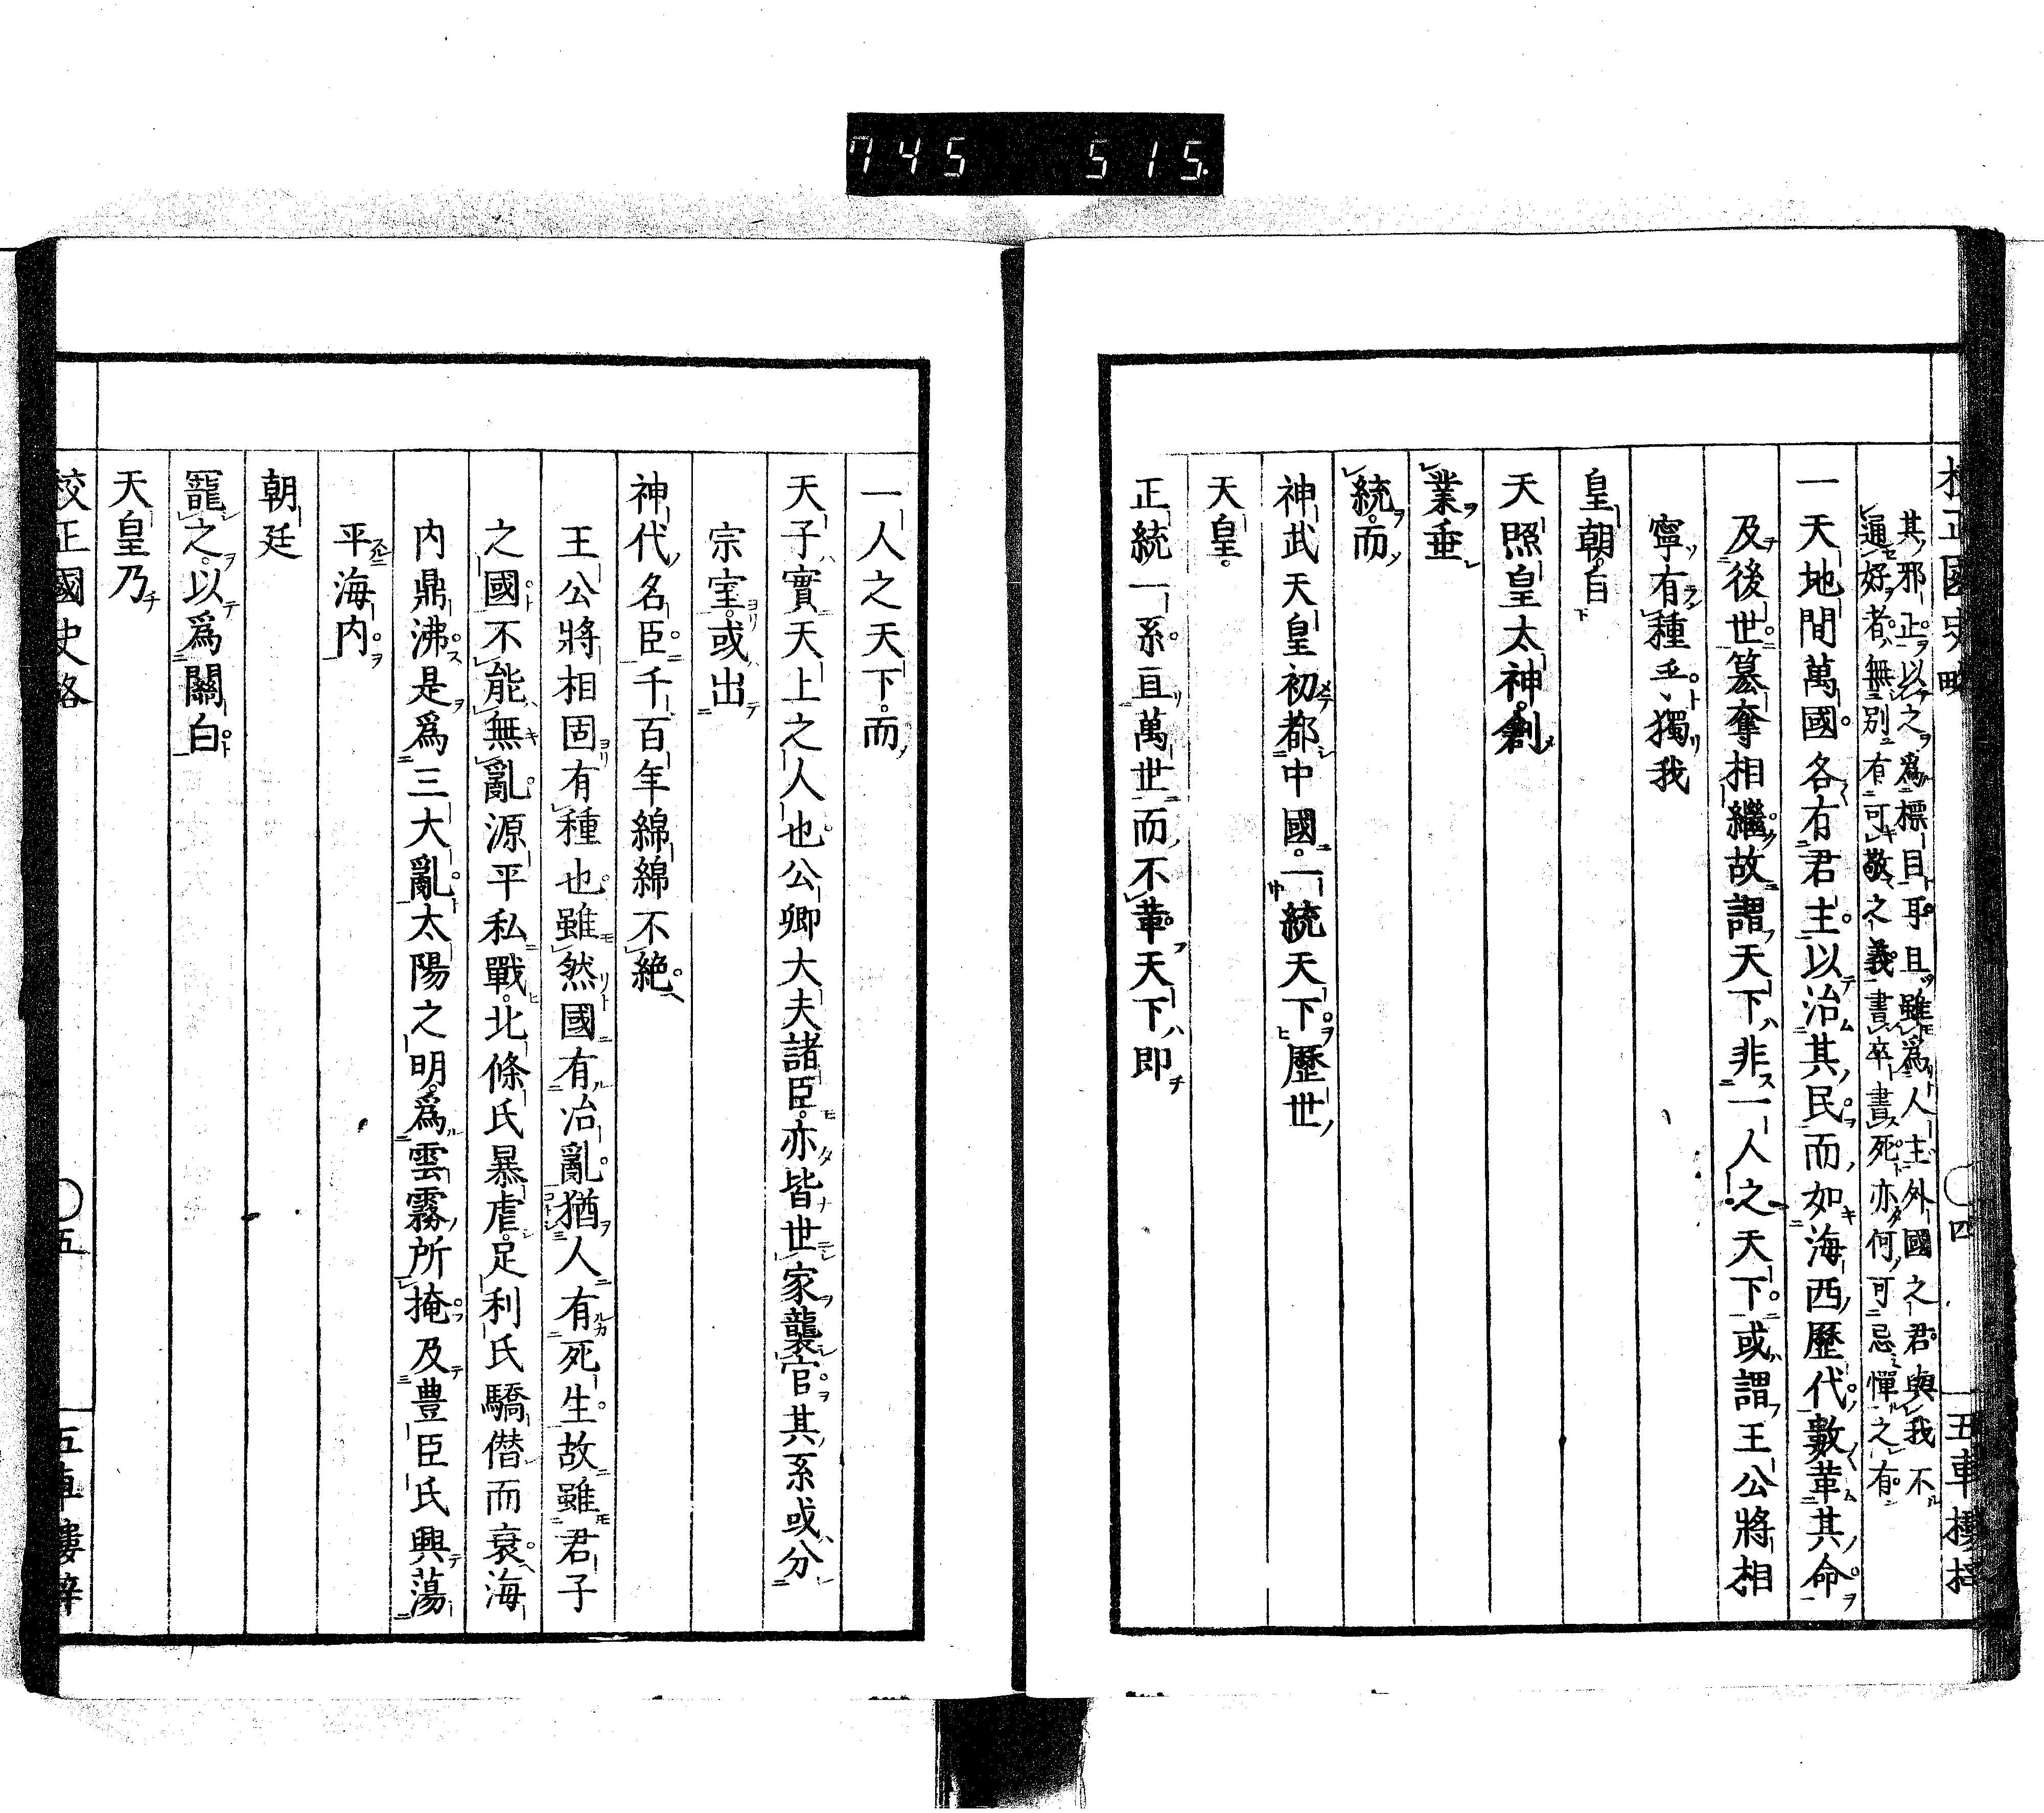 745 515.
其邪正以之爲標目耳且雖爲人主外國之君與我不
通好者無別有可敬之義書卒書死亦何可忌憚之有
一天地間萬國各有君主以治其民而如海西歷代數革其命
及後世簒奪相繼故謂天下非一人之天下或謂王公將相
寧有種乎獨我
皇朝自
天照皇太神創
業垂
統而
神武天皇初都中國一統天下歷世
天皇
正統一系亘萬世而不革天下即
一人之天下而
天子實天上之人也公卿大夫諸臣亦皆世家襲官其系或分
宗室或出
神代名臣千百年綿綿不絶
王公將相固有種也雖然國有治亂猶人有死生故雖君子
之國不能無亂源平私戰北條氏暴虐足利氏驕僭而衰海
内鼎沸是爲三大亂太陽之明爲雲霧所掩及豊臣氏興蕩
平海内
朝廷
寵之以爲關白
天皇乃
校正國史略 〇五 五車樓梓